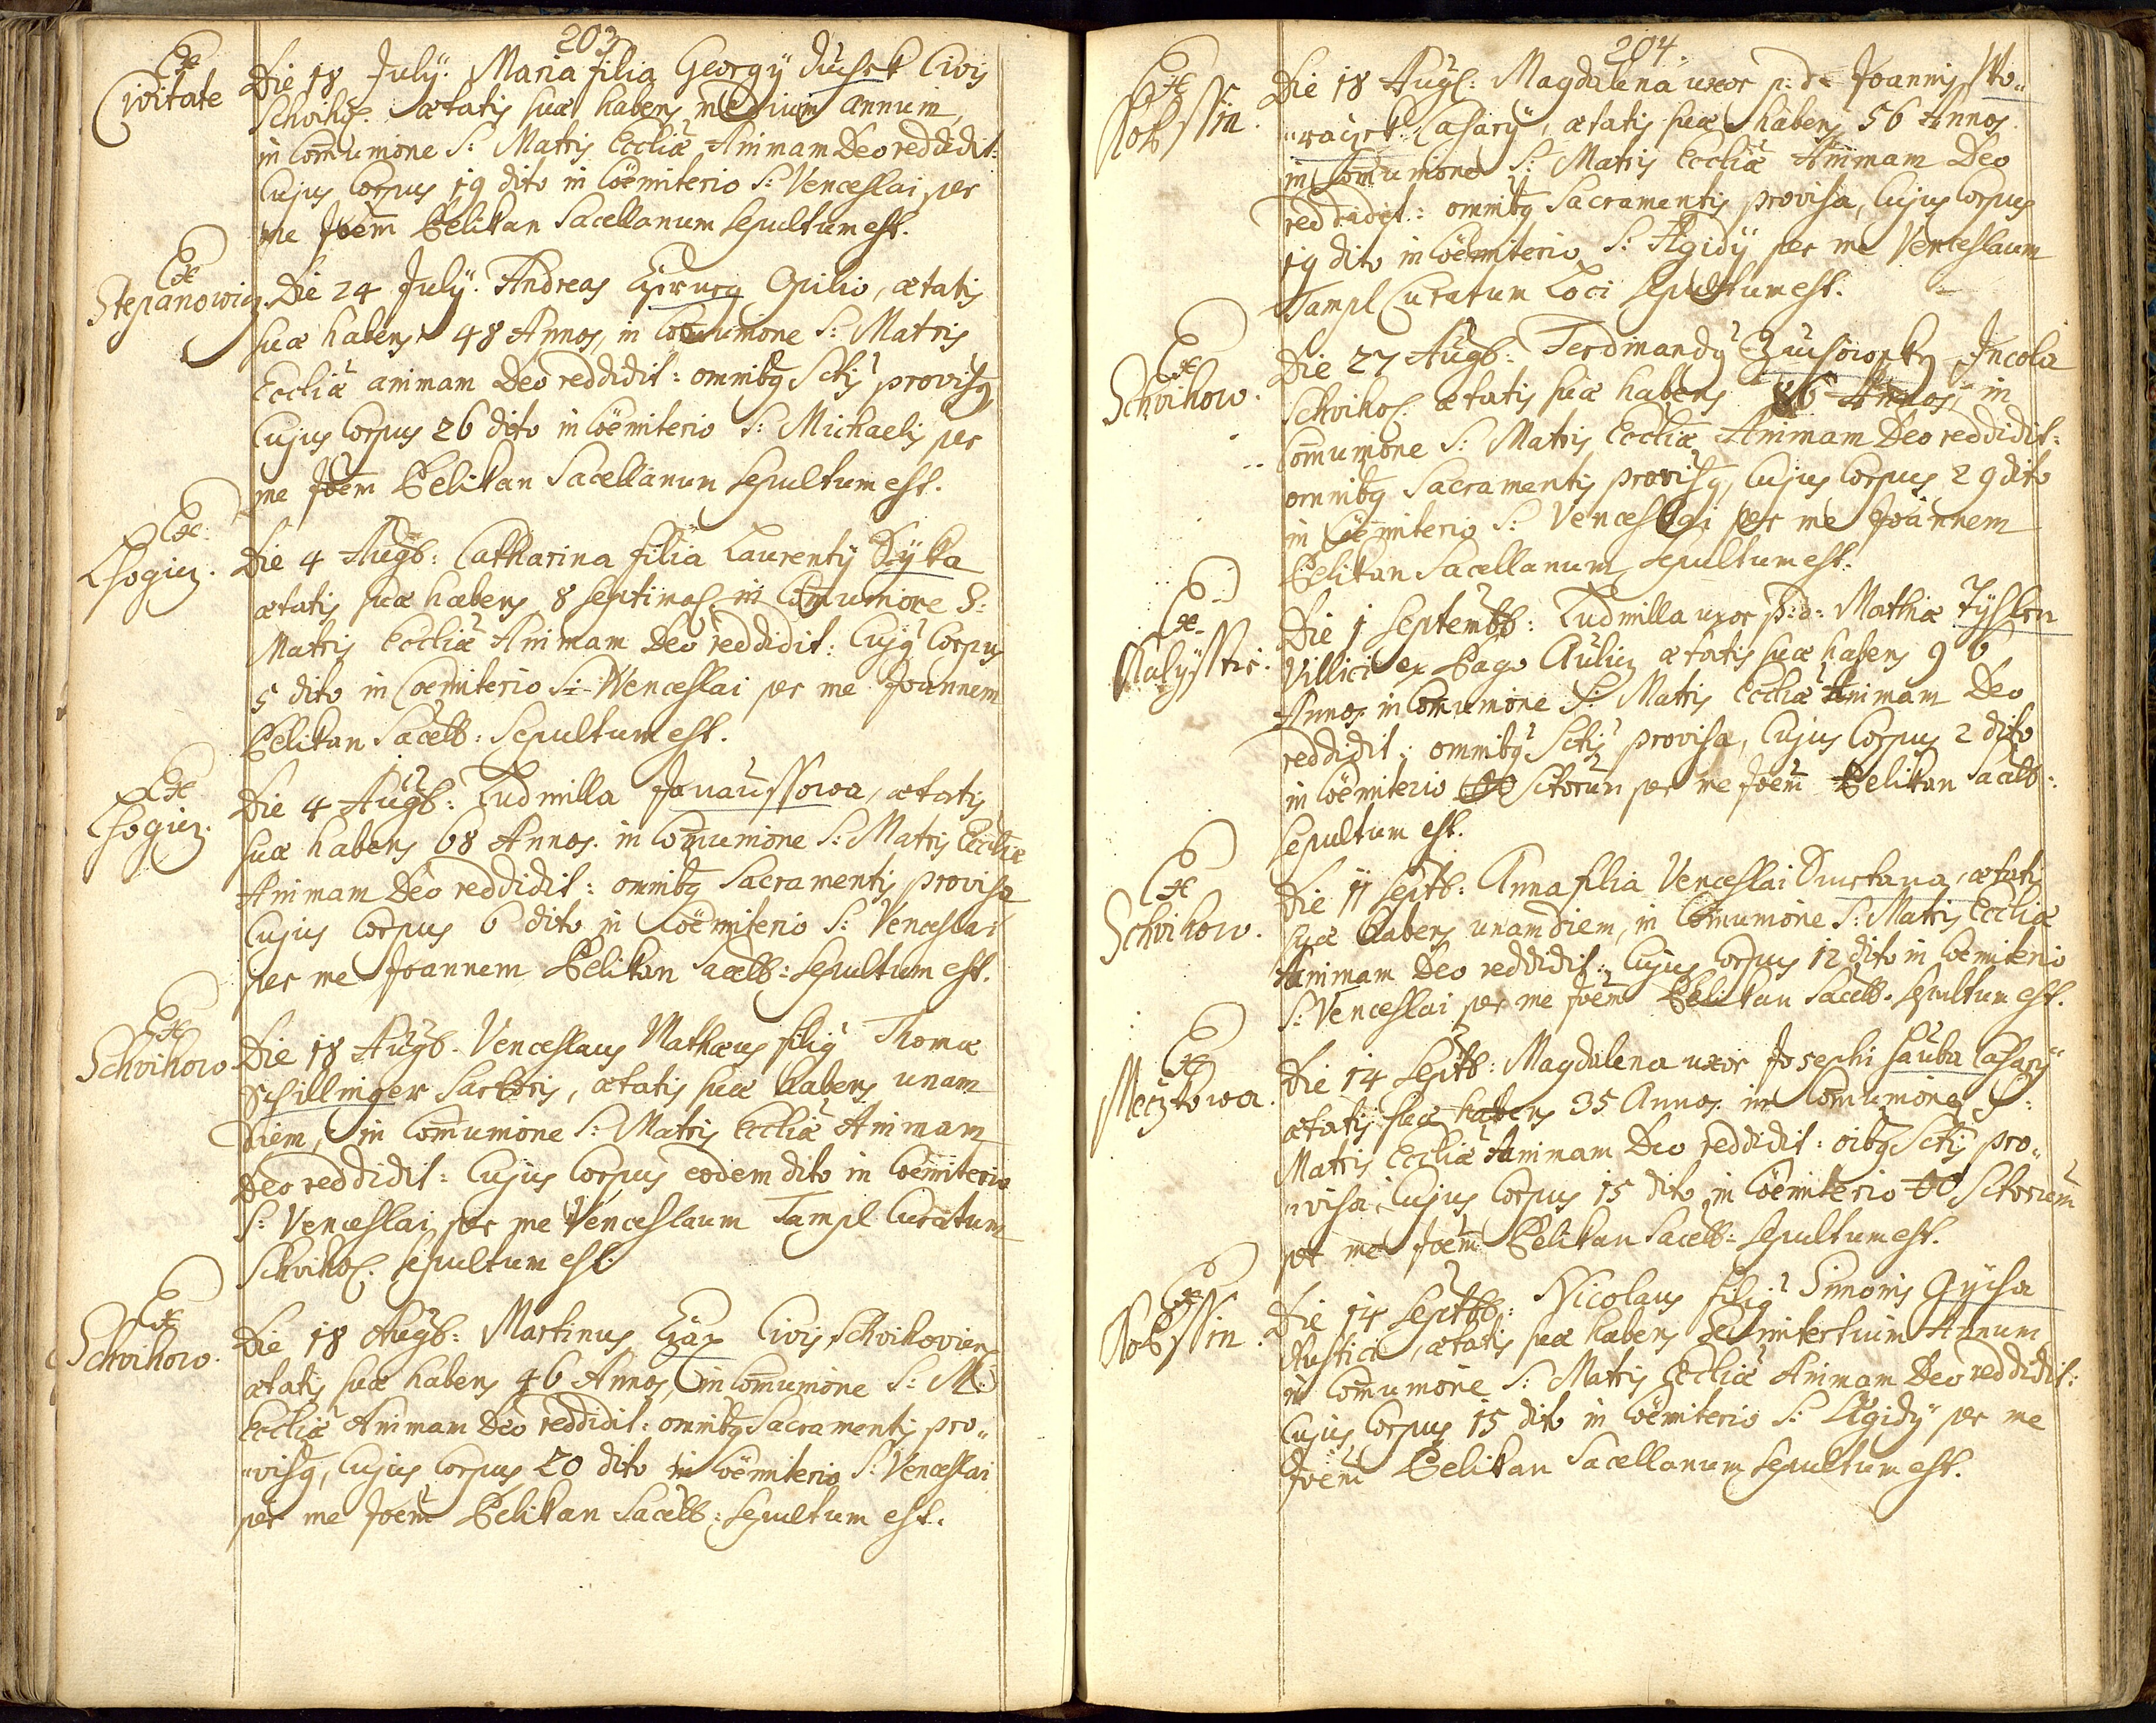 203
Ex
Civitate
Die 18 July. Maria filia Georgÿ Duchek Civis
Schvihoʃ. ætatis suæ habens medium annum,
in Com̄unione S: Matris Eccliæ Animam Deo reddidit:
Cujus Corpus 19 dito in Cöemiterio S: Venceslai per
me Joem̄ Pelikan Sacellanum sepultum est.
Ex
Stepanowicz.
Die 24 July. Andreas Opilio, ætatis
suæ habens 48 Annos, in Com̄unione S: Matris
Eccliæ animam Deo reddidit: omnibq Sctis provisq
Cujus Corpus 26 dito in Cöemiterio S: Michaelis per
me Joem̄ Pelikan Sacellanum sepultum est.
Ex
Chogicz.
Die 4 Augb: Catharina filia Laurentÿ Sÿka
ætatis suæ habens 8 septimaʃ in Com̄unione S:
Matris Eccliæ Animam Deo reddidit: Cujq Corpus
5 dito in Coemiterio S: Wenceslai per me Joannem
Pelikan Sacelb: Sepultum est.
Ex
Chogicz.
Die 4 Augb: Ludmilla Janaussowa, ætatis
suæ habens 68 Annos. in Com̄unione S: Matris Eccliæ
Animam Deo reddidit: omnibq Sacramentis provisa
Cujus Corpus 6 dito in Cöemiterio S: Venceslai
per me Joannem Pelikan Sacelb: sepultum est.
Ex
Schvihow
Die 18 Augb. Venceslaus Mathæus filiq Thomæ
Schillinger Sartoris, ætatis suæ habens unam
diem, in Com̄unione S: Matris Eccliæ Animam
Deo reddidit: Cujus Corpus eodem dito in Cöemiterio
S: Venceslai per me Venceslaum Tampl Curatum
Schvihoʃ. sepultum est.
Ex
Schvihow.
Die 18 Augb: Martinus Civis Schvihoviens
ætatis suæ habens 46 Annos, in Com̄unione S: M:
Eccliæ Animam Deo reddidit: omnibq Sacramentis pro„
„visq, Cujus Corpus 20 dito in Cöemiterio S: Venceslai
per me Joem̄ Pelikan Sacelb: sepultum est.
204.
Ex
Kokssin.
Die 18 Augʃ: Magdalena uxor p: d: Joannis
Casarÿ, ætatis suæ habens 56 Annos
in Com̄unione S: Matris Eccliæ Animam Deo
reddidit: omnibq Sacramentis provisa, Cujus Corpus
19 dito in Cöemiterio S: Ægidÿ per me Venceslaum
Tampl Curatum Loci sepultum est.
Ex
Schvihow.
Die 27 Augb: Ferdinandq Incola
Schvihoʃ. ætatis suæ habens 86 Annos, in
Com̄unione S: Matris Eccliæ Animam Deo reddidit:
omnibq Sacramentis provisq, Cujus Corpus 29 dito
in Cöemiterio S: Venceslai per me Joannem
Pelikan Sacellanum sepultum est.
Ex
Kalÿsstie.
Die 1 Septembb: Ludmilla uxor p: d: Mathiæ
Villici ex Pago Aulicz ætatis suæ habens 96
Annos in Com̄unione S: Matris Eccliæ Animam Deo
reddidit: omnibq Sctis provisa, Cujus Corpus 2 dito
in Cöemiterio OO Sctorum per me Joem̄ Pelikan Sacelb:
sepultum est.
Ex
Schvihow.
Die 11 Septb: Anna filia Venceslai Smetana, ætatis
suæ habens unam diem, in Com̄unione S: Matris Eccliæ
Animam Deo reddidit: Cujus Corpus 12 dito in Coemiterio
S: Venceslai per me Joem̄ Pelikan Sacelb. sepultum est.
Ex
Meczkowa.
Die 14 Septb: Magdalena uxor Josephi Hauba Casarÿ
ætatis suæ habens 35 Annos in Com̄unione S:
Matris Eccliæ Animam Deo reddidit: oibq Sctis pro„
„visa Cujus Corpus 15 dito in Cöemiterio OO Sctorum
per me Joem̄ Pelikan Sacelb: sepultum est.
Ex
Kokssin.
Die 14 Septbb: Nicolaus filiq Simonis Gÿcha
Rustici, ætatis suæ habens Semitertium Annum
in Com̄unione S: Matris Eccliæ Animam Deo reddidit:
Cujus Corpus 15 dito in Cöemiterio S: Ægidÿ per me
Joem̄ Pelikan Sacellanum sepultum est.